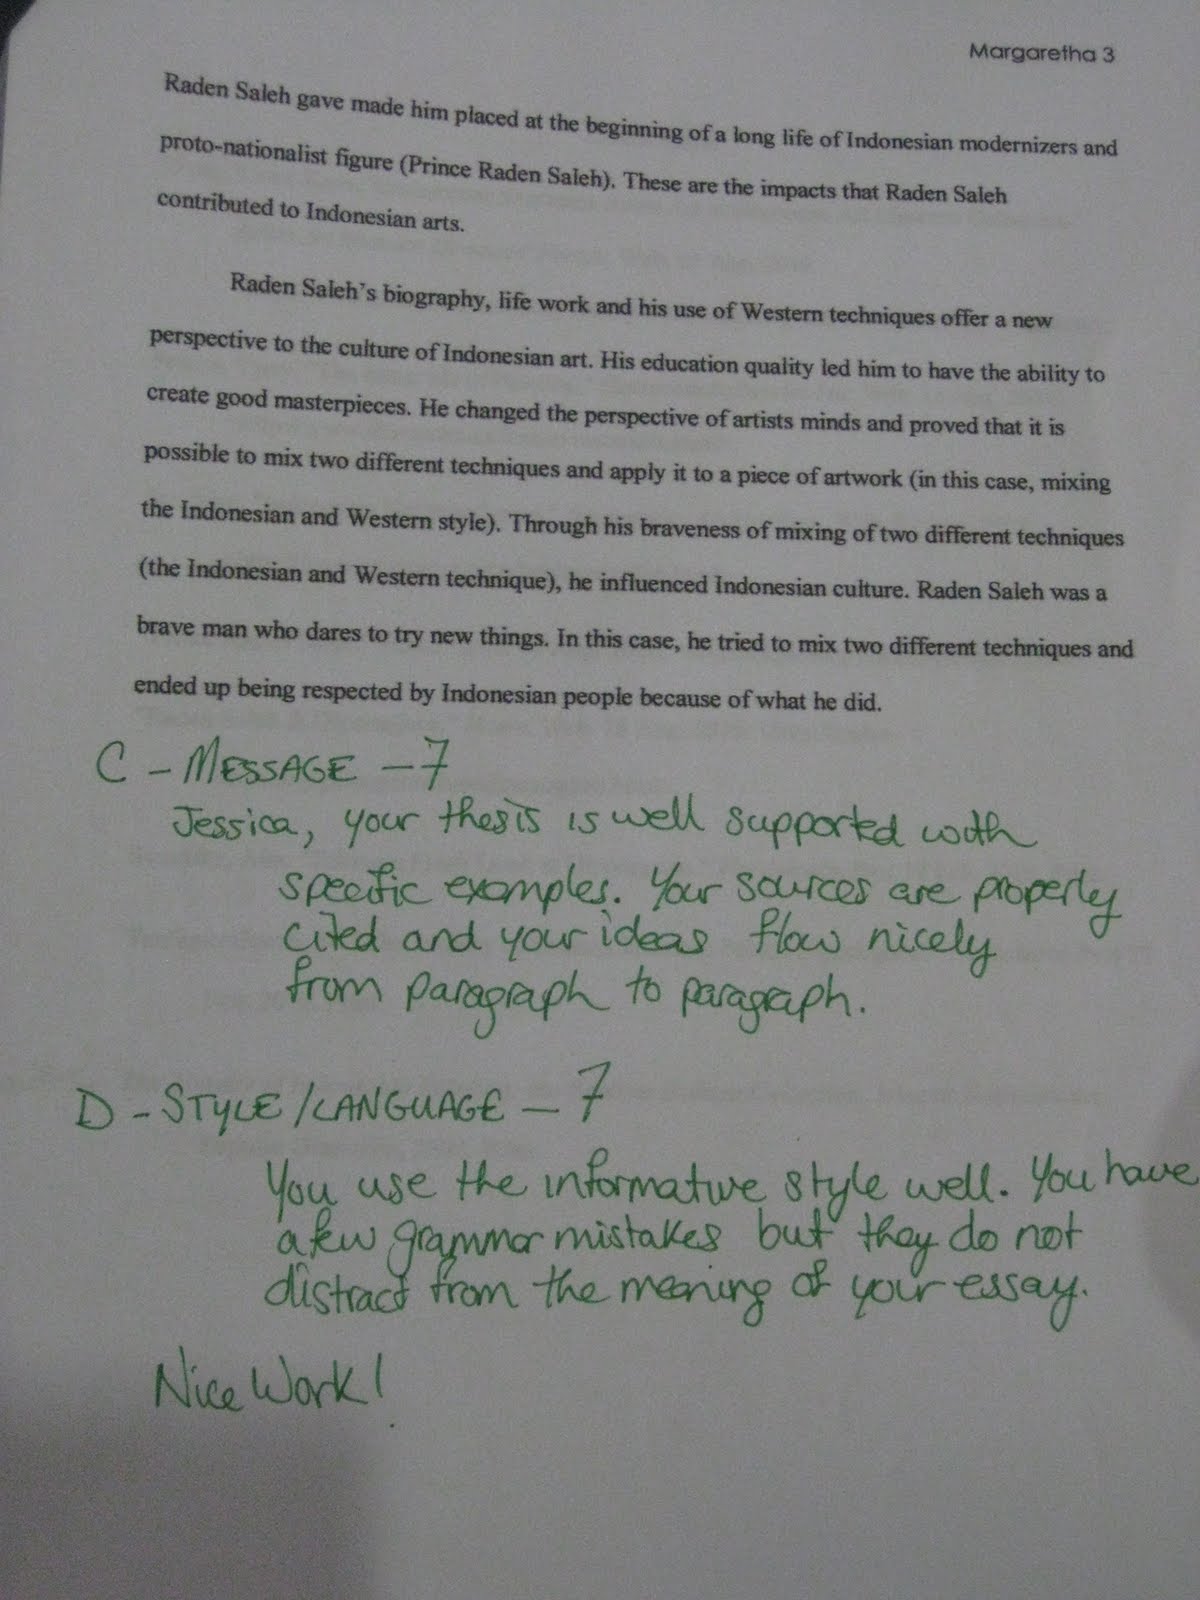 Margaretha 3
Raden Saleh gave made him placed at the beginning of a long life of Indonesian modernizers and
proto-nationalist figure (Prince Raden Saleh). These are the impacts that Raden Saleh
contributed to Indonesian arts.
Raden Saleh's biography, life work and his use of Western techniques offer a new
perspective to the culture of Indonesian art. His education quality led him to have the ability to
create good masterpieces. He changed the perspective of artists minds and proved that it is
possible to mix two different techniques and apply it to a piece of artwork (in this case, mixing
the Indonesian and Western style). Through his braveness of mixing of two different techniques
(the Indonesian and Western technique), he influenced Indonesian culture. Raden Saleh was a
brave man who dares to try new things. In this case, he tried to mix two different techniques and
ended up being respected by Indonesian people because of what he did.
C - MESSAGE - 7
Jessica, your thesis is well supported with
specific examples. Your sources are properly
cited and your ideas flow nicely
from paragraph to paragraph.
D - STYLE/LANGUAGE - 7
You use the informative style well. You have
a few grammar mistakes but they do not
distract from the meaning of your essay.
Nice Work!